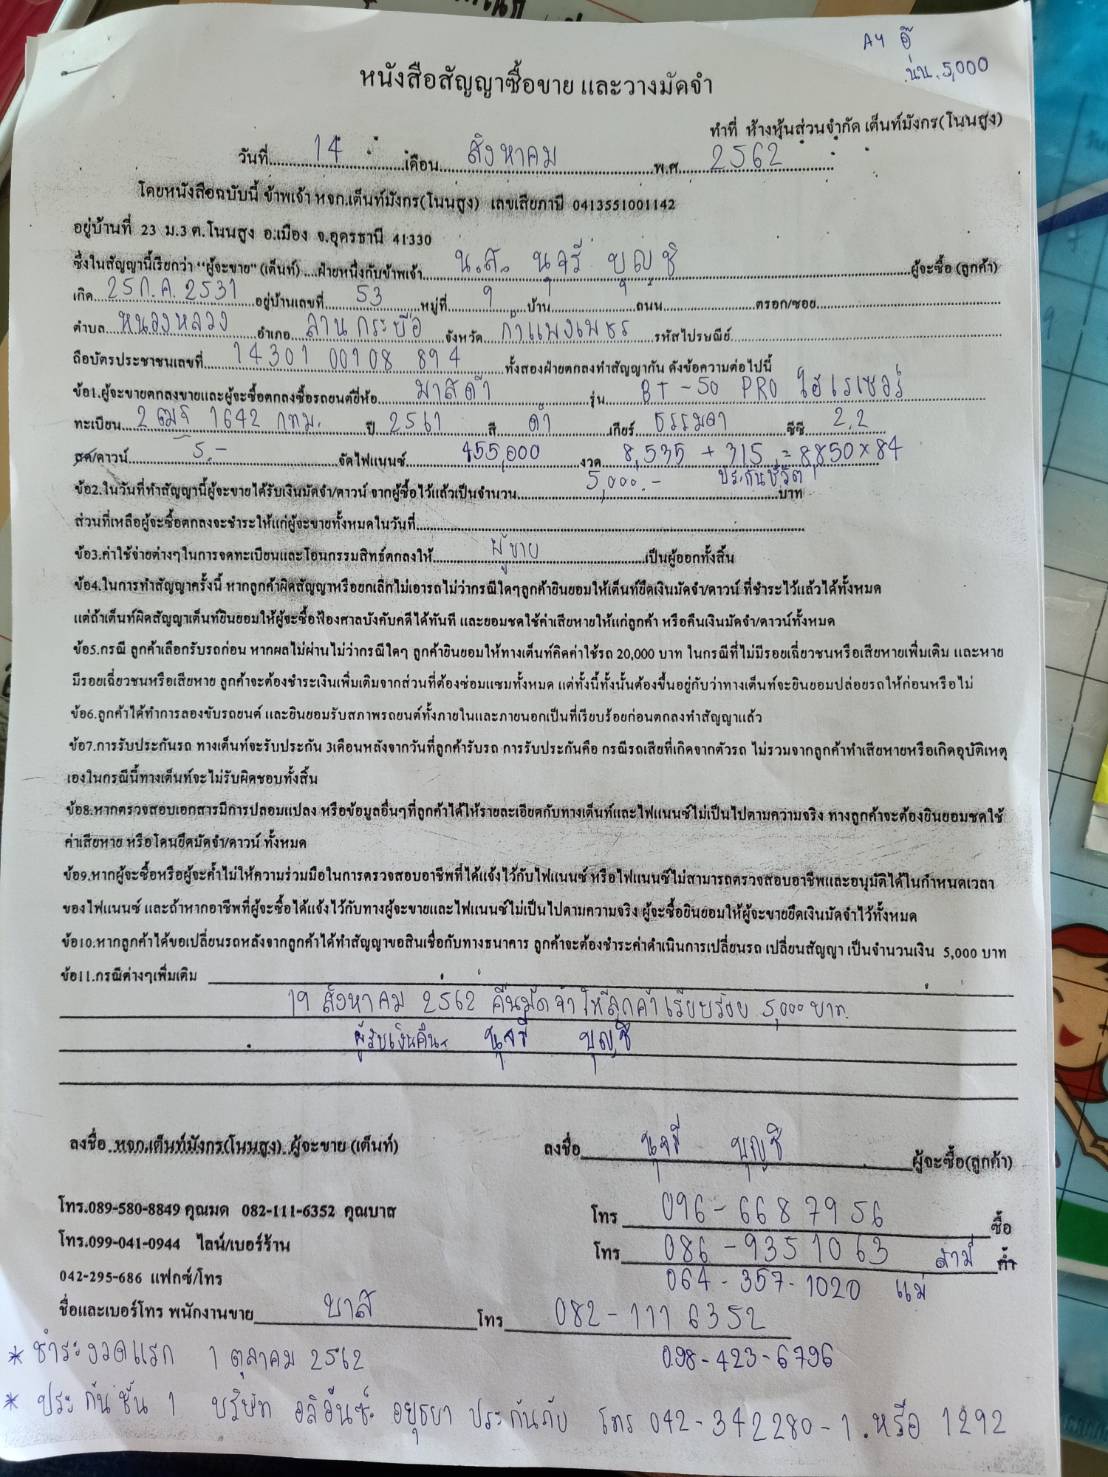 A4 อู๊
นน. 5,000
หนังสือสัญญาซื้อขาย และวางมัดจำ
ทำที่ ห้างหุ้นส่วนจำกัด เต็นท์มังกร(โนนสูง)
วันที่ 14 เดือน สิงหาคม พ.ศ. 2562
โดยหนังสือฉบับนี้ ข้าพเจ้า หจก.เต็นท์มังกร(โนนสูง) เลขเสียภาษี 0413551001142
อยู่บ้านที่ 23 ม.3 ต.โนนสูง อ.เมือง จ.อุดรธานี 41330
ซึ่งในสัญญานี้เรียกว่า "ผู้จะขาย" (เต็นท์) ฝ่ายหนึ่งกับข้าพเจ้า น.ส. นุจรี บุญชิ ผู้จะซื้อ (ลูกค้า)
เกิด 25 ก.ค. 2531 อยู่บ้านเลขที่ 53 หมู่ที่ 9 บ้าน ถนน ตรอก/ซอย
ตำบล หนองหลวง อำเภอ ลานกระบือ จังหวัด กำแพงเพชร รหัสไปรษณีย์
ถือบัตรประชาชนเลขที่ 14301 00108 894 ทั้งสองฝ่ายตกลงทำสัญญากัน ดังข้อความต่อไปนี้
ข้อ1.ผู้จะขายตกลงขายและผู้จะซื้อตกลงซื้อรถยนต์ยี่ห้อ มาสด้า รุ่น BT-50 PRO ไฮเรเซอร์
ทะเบียน 2ฒฐ 1642 กทม. ปี 2561 สี ดำ เกียร์ ธรรมดา ซีซี 2.2
สด/ดาวน์ 5.- จัดไฟแนนซ์ 455,000 งวด 8,535 + 315 = 8,850x84
ประกันชีวิต
ข้อ2.ในวันที่ทำสัญญานี้ผู้จะขายได้รับเงินมัดจำ/ดาวน์ จากผู้ซื้อไว้แล้วเป็นจำนวน 5,000.- บาท
ส่วนที่เหลือผู้จะซื้อตกลงจะชำระให้แก่ผู้จะขายทั้งหมดในวันที่
ข้อ3.ค่าใช้จ่ายต่างๆในการจดทะเบียนและโอนกรรมสิทธิ์ตกลงให้ ผู้ขาย เป็นผู้ออกทั้งสิ้น
ข้อ4.ในการทำสัญญาครั้งนี้ หากลูกค้าผิดสัญญาหรือยกเลิกไม่เอารถ ไม่ว่ากรณีใดๆลูกค้ายินยอมให้เต็นท์ยึดเงินมัดจำ/ดาวน์ ที่ชำระไว้แล้วได้ทั้งหมด
แต่ถ้าเต็นท์ผิดสัญญาเต็นท์ยินยอมให้ผู้จะซื้อฟ้องศาลบังคับคดีได้ทันที และยอมชดใช้ค่าเสียหายให้แก่ลูกค้า หรือคืนเงินมัดจำ/ดาวน์ทั้งหมด
ข้อ5.กรณี ลูกค้าเลือกรับรถก่อน หากผลไม่ผ่านไม่ว่ากรณีใดๆ ลูกค้ายินยอมให้ทางเต็นท์คิดค่าใช้รถ 20,000 บาท ในกรณีที่ไม่มีรอยเฉี่ยวชนหรือเสียหายเพิ่มเติม และหาย
มีรอยเฉี่ยวชนหรือเสียหาย ลูกค้าจะต้องชำระเงินเพิ่มเติมจากส่วนที่ต้องซ่อมแซมทั้งหมด แต่ทั้งนี้ทั้งนั้นต้องขึ้นอยู่กับว่าทางเต็นท์จะยินยอมปล่อยรถให้ก่อนหรือไม่
ข้อ6.ลูกค้าได้ทำการลองขับรถยนต์ และยินยอมรับสภาพรถยนต์ทั้งภายในและภายนอกเป็นที่เรียบร้อยก่อนตกลงทำสัญญาแล้ว
ข้อ7.การรับประกันรถ ทางเต็นท์จะรับประกัน 3เดือนหลังจากวันที่ลูกค้ารับรถ การรับประกันคือ กรณีรถเสียที่เกิดจากตัวรถ ไม่รวมจากลูกค้าทำเสียหายหรือเกิดอุบัติเหตุ
เองในกรณีนี้ทางเต็นท์จะไม่รับผิดชอบทั้งสิ้น
ข้อ8.หากตรวจสอบเอกสารมีการปลอมแปลง หรือข้อมูลอื่นๆที่ลูกค้าได้ให้รายละเอียดกับทางเต็นท์และไฟแนนซ์ไม่เป็นไปตามความจริง ทางลูกค้าจะต้องยินยอมชดใช้
ค่าเสียหาย หรือโดนยึดมัดจำ/ดาวน์ ทั้งหมด
ข้อ9.หากผู้จะซื้อหรือผู้จะค้ำไม่ให้ความร่วมมือในการตรวจสอบอาชีพที่ได้แจ้งไว้กับไฟแนนซ์ หรือไฟแนนซ์ไม่สามารถตรวจสอบอาชีพและอนุมัติได้ในกำหนดเวลา
ของไฟแนนซ์ และถ้าหากอาชีพที่ผู้จะซื้อได้แจ้งไว้กับทางผู้จะขายและไฟแนนซ์ไม่เป็นไปตามความจริง ผู้จะซื้อยินยอมให้ผู้จะขายยึดเงินมัดจำไว้ทั้งหมด
ข้อ10.หากลูกค้าได้ขอเปลี่ยนรถหลังจากลูกค้าได้ทำสัญญาขอสินเชื่อกับทางธนาคาร ลูกค้าจะต้องชำระค่าดำเนินการเปลี่ยนรถ เปลี่ยนสัญญา เป็นจำนวนเงิน 5,000 บาท
ข้อ11.กรณีต่างๆเพิ่มเติม
19 สิงหาคม 2562 คืนมัดจำให้ลูกค้าเรียบร้อย 5,000 บาท.
ผู้รับเงินคืน นุจรี บุญชิ
ลงชื่อ หจก.เต็นท์มังกร(โนนสูง) ผู้จะขาย (เต็นท์) ลงชื่อ นุจรี บุญชิ ผู้จะซื้อ(ลูกค้า)
โทร.089-580-8849 คุณมด 082-111-6352 คุณบาส โทร 096-6687956 ซื้อ
โทร.099-041-0944 ไลน์/เบอร์ร้าน โทร 086-9351063 สามี ค้ำ
042-295-686 แฟกซ์/โทร 064-357-1020 แม่
ชื่อและเบอร์โทร พนักงานขาย บาส โทร 082-111 6352
* ชำระงวดแรก 1 ตุลาคม 2562 098-423-6796
* ประกันชั้น 1 บริษัท อลิอันซ์ อยุธยา ประกันภัย โทร 042-342280-1. หรือ 1292